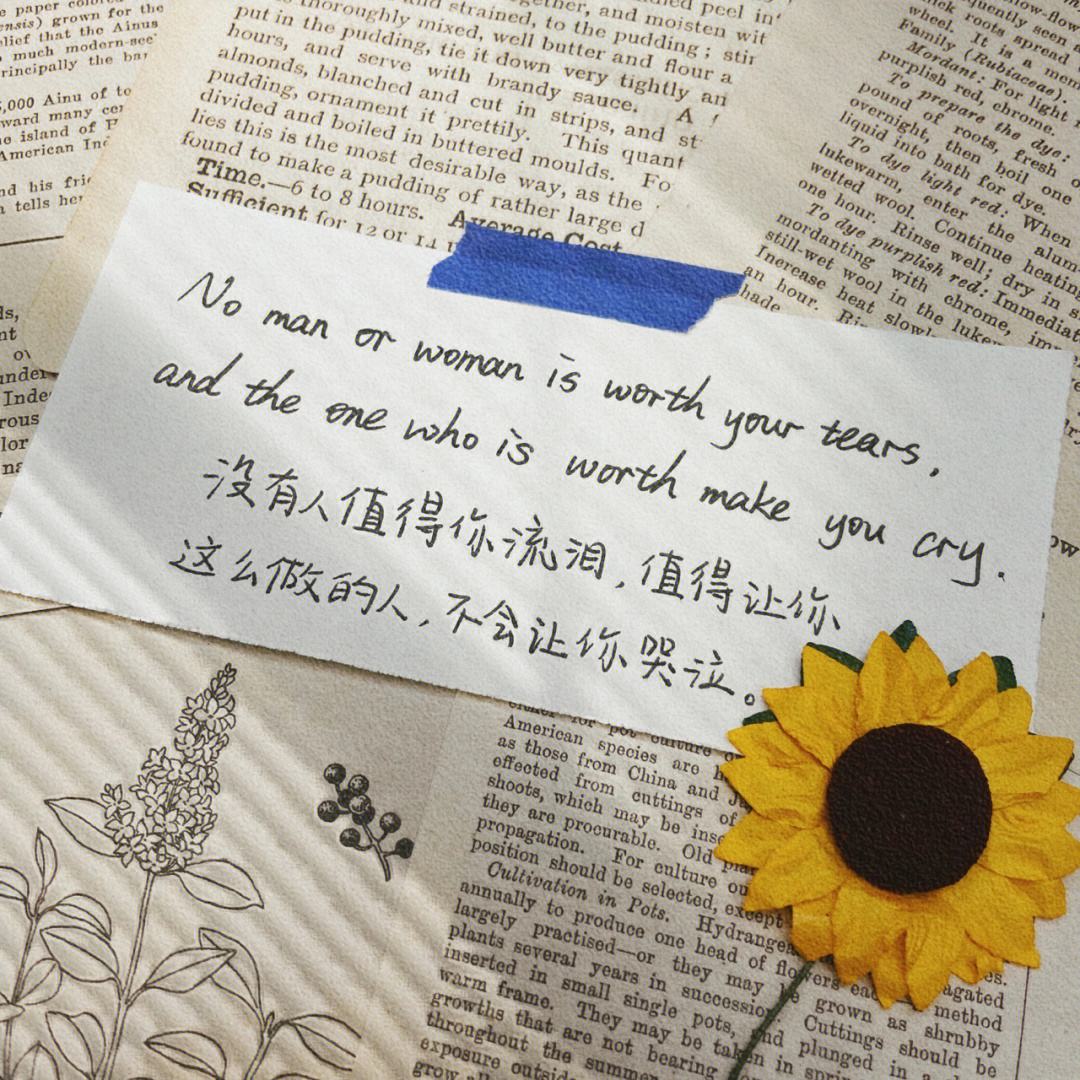 paper
grown for the
elief that the Ainus
much modern
rincipally the
5,000 Ainu of
ward many
island of
American
his
tells
and moisten
and strained, to the pudding; stir
thoroughly mixed, well butter and flour a
put in the pudding, tie it down very tightly
hours, and serve with brandy sauce. A
almonds, blanched and cut in strips, and
pudding, ornament it prettily. This
divided and boiled in buttered moulds.
lies this is the most desirable way, as the
found to make a pudding of rather large
Time.—6 to 8 hours. Average Cost
Sufficient for 12 or 14
seen
roots spread
wheel. It is a
Family (Rubiaceae).
Mordant: For light
purplish red, chrome.
To prepare the dye:
pound of roots, fresh
overnight, then boil one
liquid into bath for dye.
To dye light red: When
lukewarm, enter the
wetted wool. Continue heating
one hour. Rinse well; dry in
To dye purplish red:
mordanting with chrome,
still-wet wool in the
Increase heat
an hour.
No man or woman is worth your tears,
and the one who is worth make you cry.
没有人值得你流泪,值得让你
这么做的人,不会让你哭泣。
either for pot culture
American species are
as those from China and
effected from cuttings of
shoots, which may be
they are procurable. Old
propagation. For culture
position should be selected, except
Cultivation in Pots.
annually to produce one head of flowers method
largely practised—or they may be grown as shrubby
plants several years in succession. Cuttings should be
inserted in small single pots, and plunged in a
warm frame. They may be taken in
growths that are not bearing
throughout the summer
exposure
grow